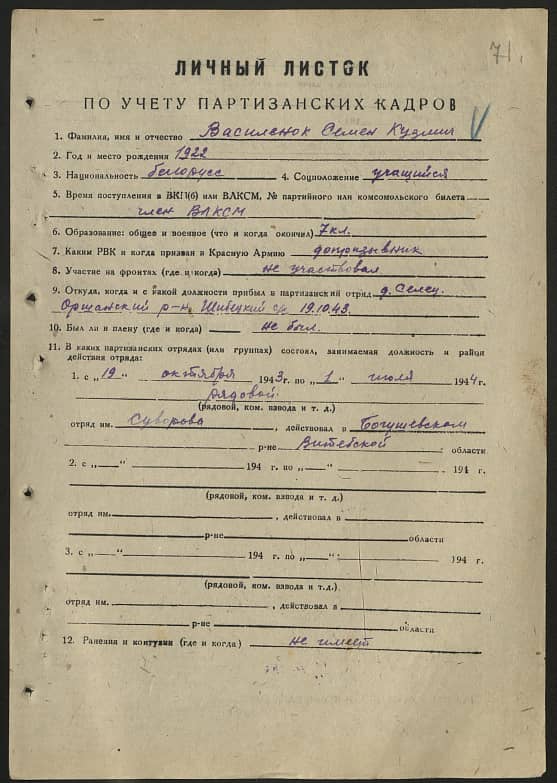 71.
ЛИЧНЫЙ ЛИСТОК
ПО УЧЕТУ ПАРТИЗАНСКИХ КАДРОВ
1. Фамилия, имя и отчество Василенок Семен Кузмич
2. Год и место рождения 1922
3. Национальность белорусс 4. Соцположение учащийся
5. Время поступления в ВКП(б) или ВЛКСМ, № партийного или комсомольского билета
член ВЛКСМ
6. Образование: общее и военное (что и когда окончил) 7 кл.
7. Каким РВК и когда призван в Красную Армию допризывник
8. Участие на фронтах (где и когда) не участвовал
9. Откуда, когда и с какой должности прибыл в партизанский отряд д. Селец
Оршанский р-н 19.10.43.
10. Был ли в плену (где и когда) не был.
11. В каких партизанских отрядах (или группах) состоял, занимаемая должность и район
действия отряда:
1. с „19" октября 1943 г. по „1" июля 1944 г.
рядовой
(рядовой, ком. взвода и т. д.)
отряд им. Суворова, действовал в Богушевском
р-не Витебской области
2. с „—" 194 г. по „—" 194 г.
(рядовой, ком. взвода и т. д.)
отряд им. , действовал в
р-не области
3. с „—" 194 г. по „—" 194 г.
(рядовой, ком. взвода и т. д.)
отряд им. , действовал в
р-не области
12. Ранения и контузии (где и когда) не имеет